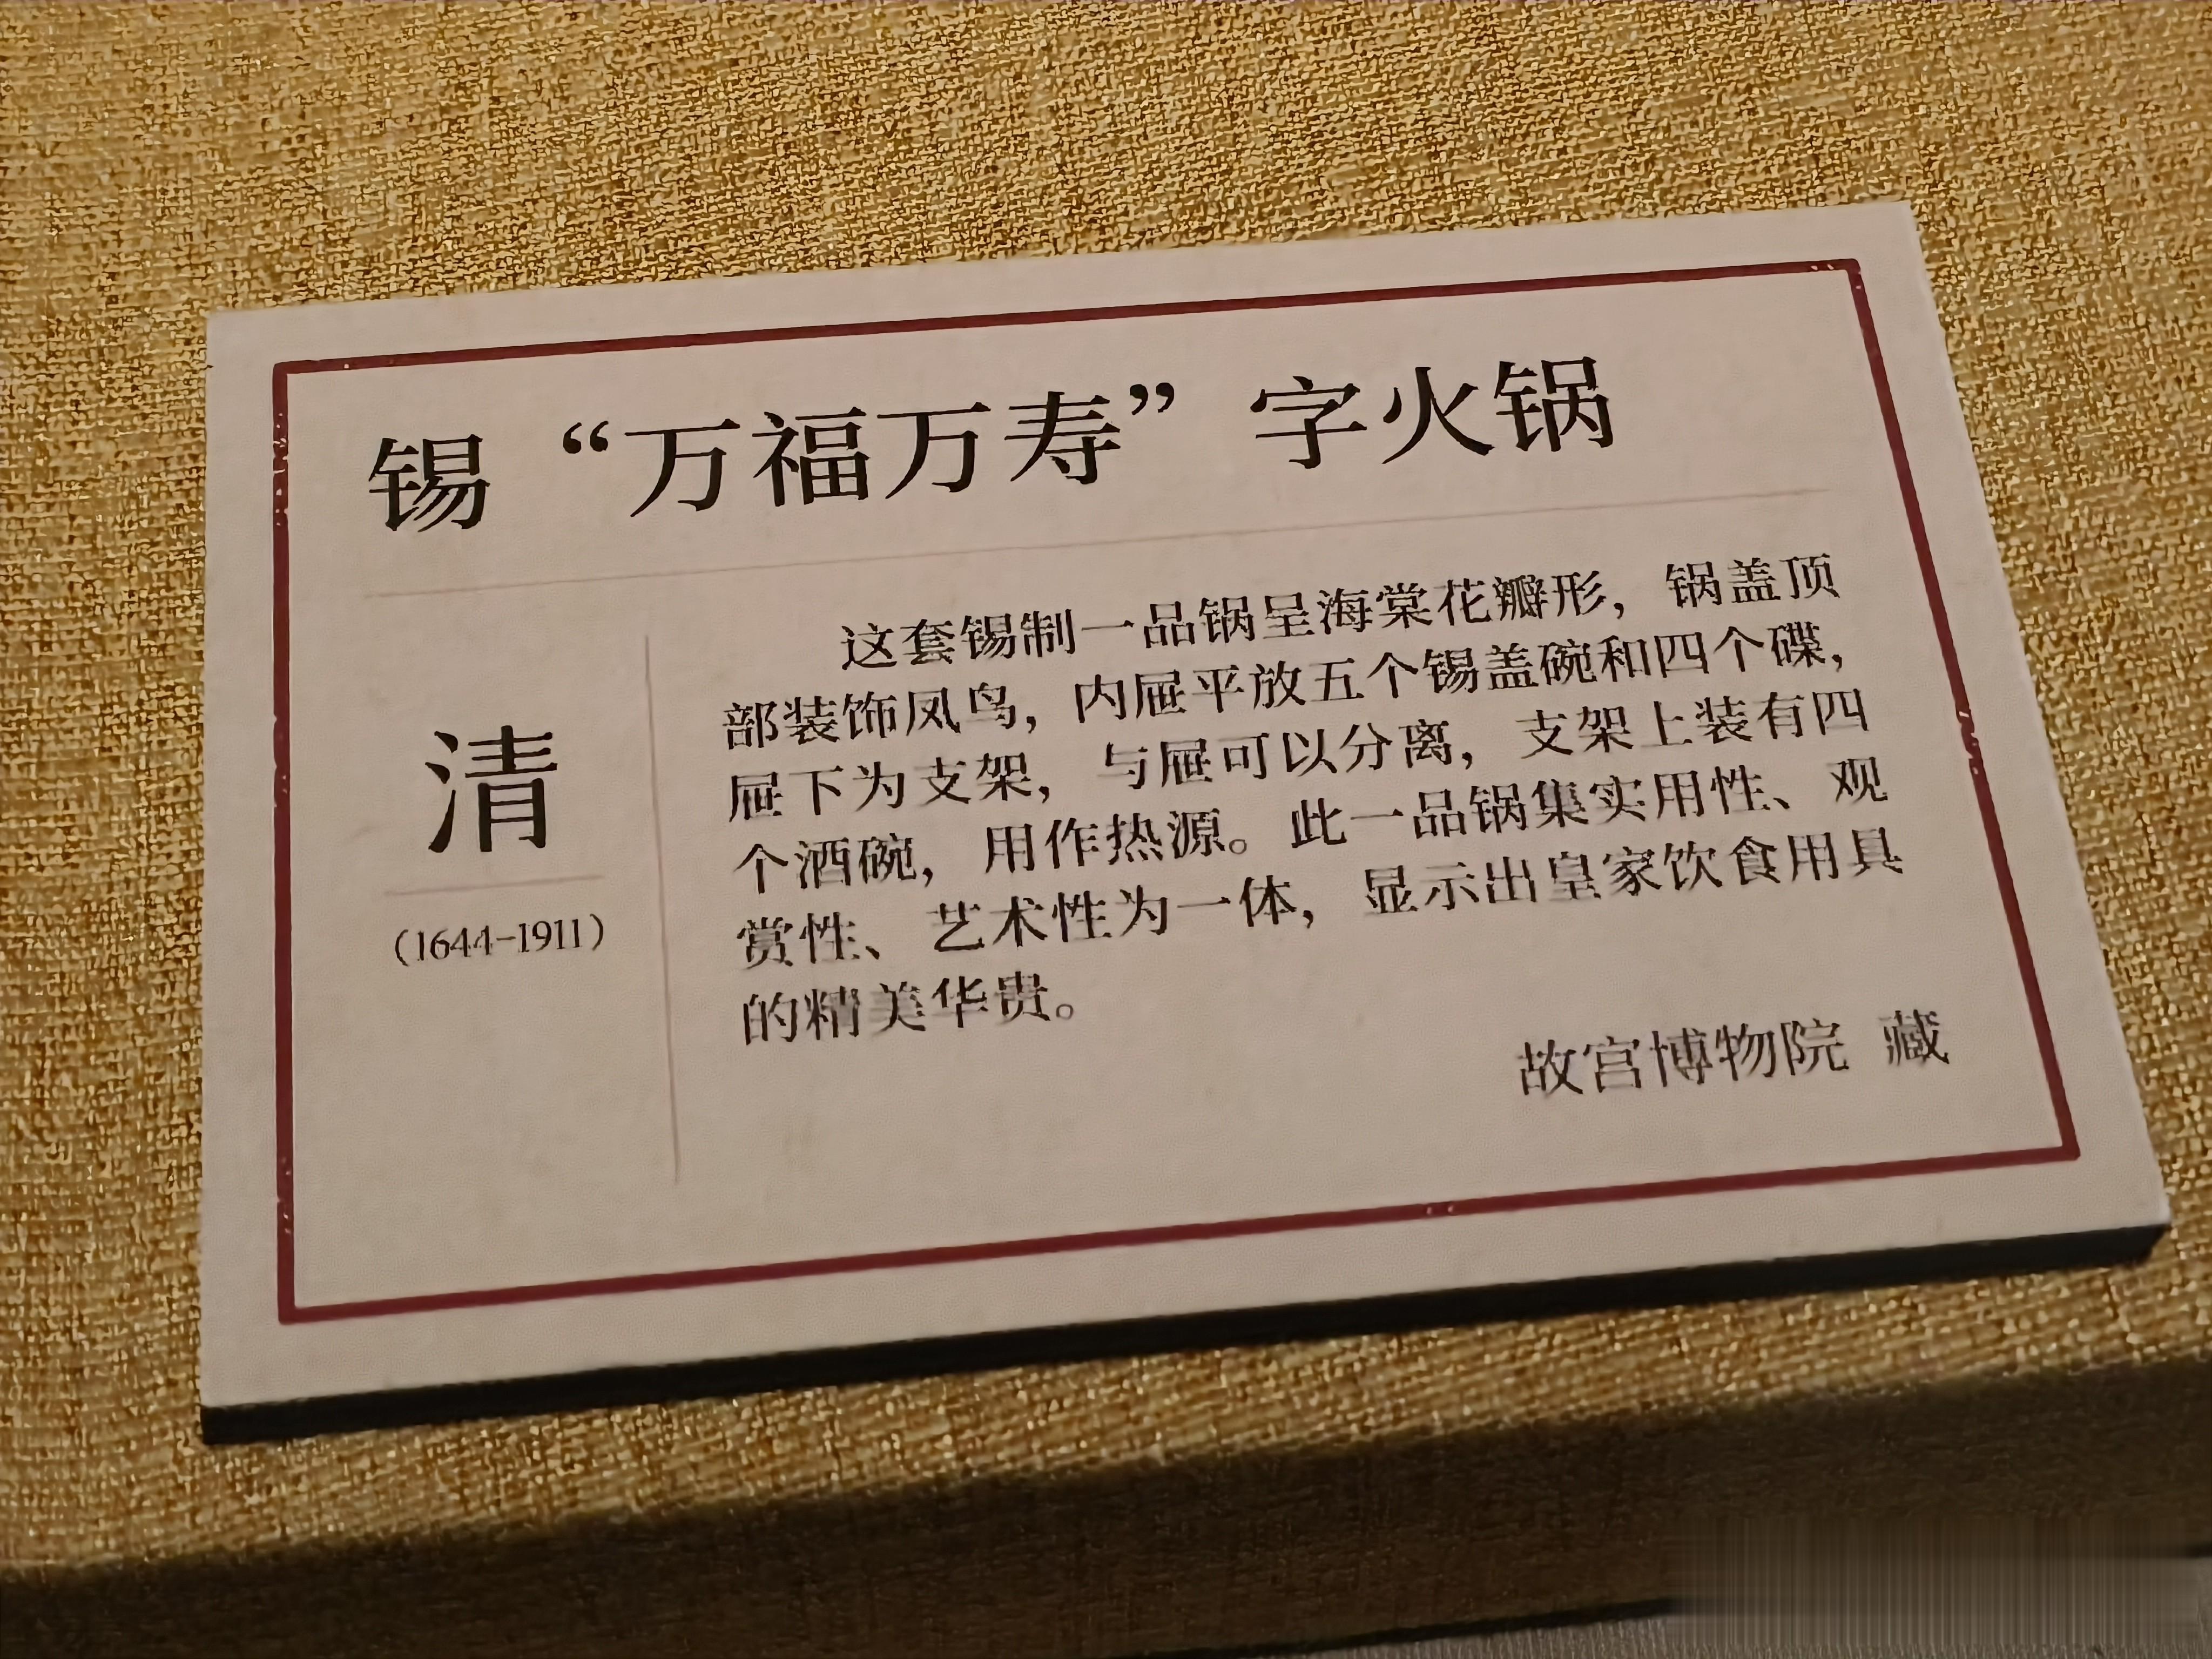 锡“万福万寿”字火锅
清
(1644-1911)
这套锡制一品锅呈海棠花瓣形，锅盖顶
部装饰凤鸟，内屉平放五个锡盖碗和四个碟，
屉下为支架，与屉可以分离，支架上装有四
个酒碗，用作热源。此一品锅集实用性、观
赏性、艺术性为一体，显示出皇家饮食用具
的精美华贵。
故宫博物院 藏